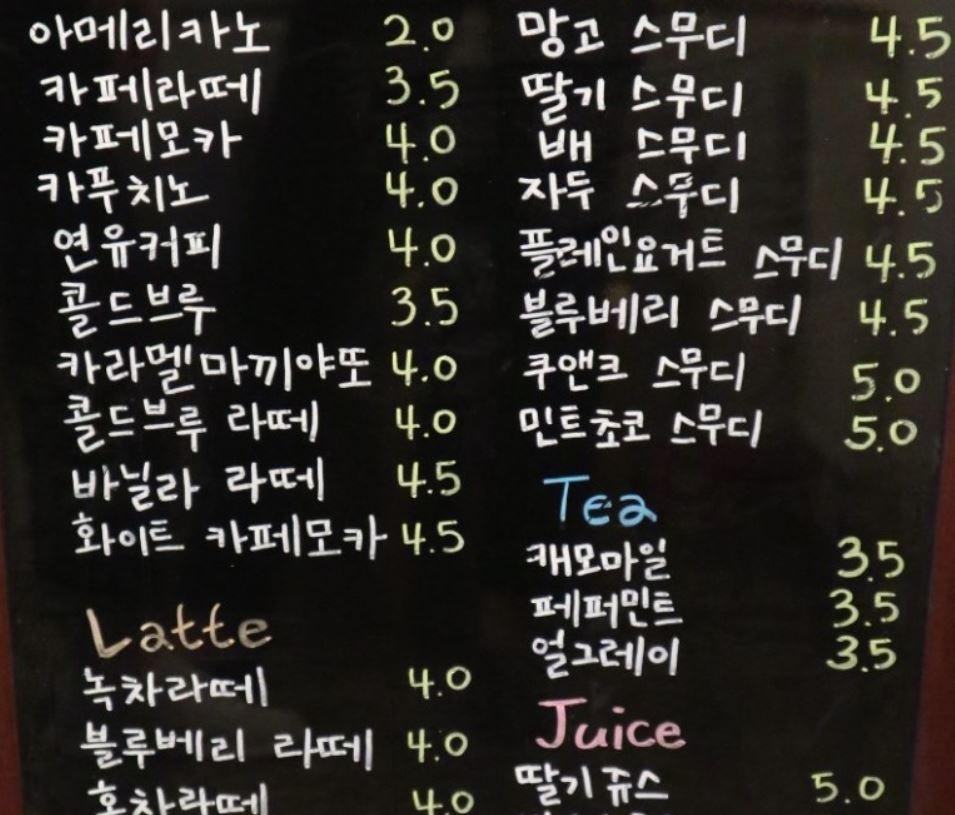 아메리카노 2.0
카페라떼 3.5
카페모카 4.0
카푸치노 4.0
연유커피 4.0
콜드브루 3.5
카라멜마끼야또 4.0
콜드브루 라떼 4.0
바닐라 라떼 4.5
화이트 카페모카 4.5
Latte
녹차라떼 4.0
블루베리 라떼 4.0
홍차라떼 4.0
망고 스무디 4.5
딸기 스무디 4.5
배 스무디 4.5
자두 스무디 4.5
플레인요거트 스무디 4.5
블루베리 스무디 4.5
쿠앤크 스무디 5.0
민트초코 스무디 5.0
Tea
캐모마일 3.5
페퍼민트 3.5
얼그레이 3.5
Juice
딸기쥬스 5.0